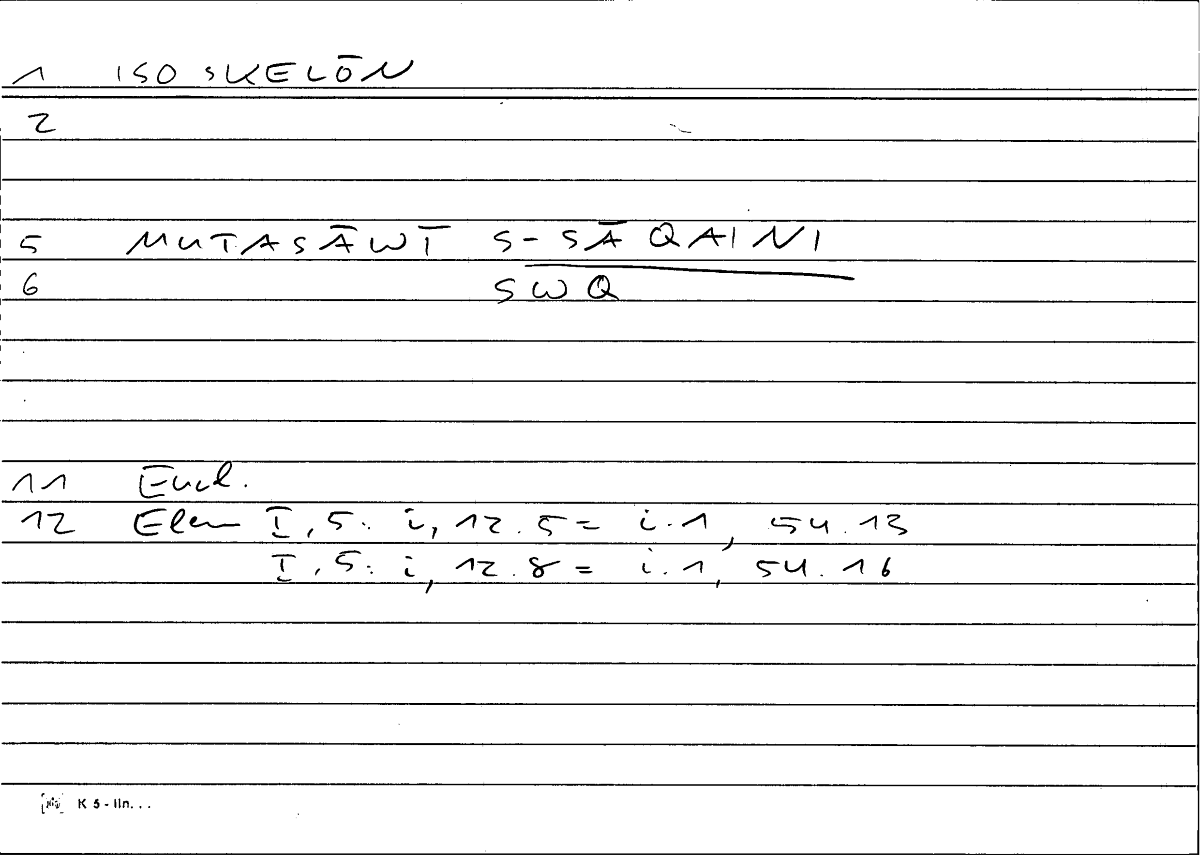 1 ISOSKELŌN
2
5 MUTASĀWĪ S-SĀQAINI
6 SWQ
11 Eucl.
12 Elem I, 5: i, 12.5 = i.1, 54.13
I, 5: i, 12.8 = i.1, 54.16
K 5 - lin...